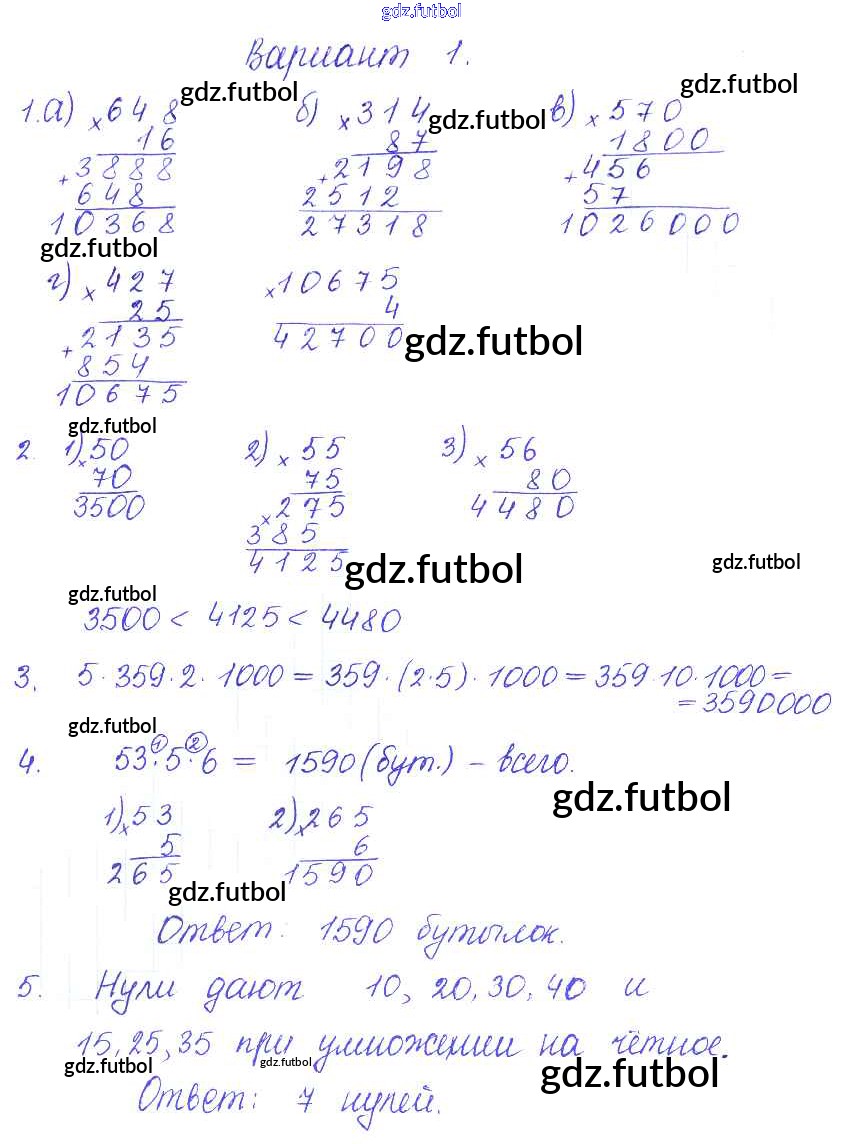 gdz.futbol
Вариант 1.
gdz.futbol
gdz.futbol
gdz.futbol
1. а) × 648 б) × 314 в) × 570
16 87 1800
+ 3888 + 2198 + 456
648 2512 57
10368 27318 1026000
gdz.futbol
г) × 427 × 10675
25 4
+ 2135 42700
gdz.futbol
854
10675
gdz.futbol
2. 1) × 50 2) × 55 3) × 56
70 75 80
3500 × 275 4480
385
4125
gdz.futbol
gdz.futbol
gdz.futbol
3500 < 4125 < 4480
3. 5·359·2·1000 = 359·(2·5)·1000 = 359·10·1000 =
= 3590000
gdz.futbol
① ②
4. 53·5·6 = 1590 (бут.) – всего.
gdz.futbol
1) × 53 2) × 265
5 6
265 1590
gdz.futbol
Ответ: 1590 бутылок.
5. Нули дают 10, 20, 30, 40 и
15, 25, 35 при умножении на чётное.
gdz.futbol
gdz.futbol
gdz.futbol
Ответ: 7 нулей.